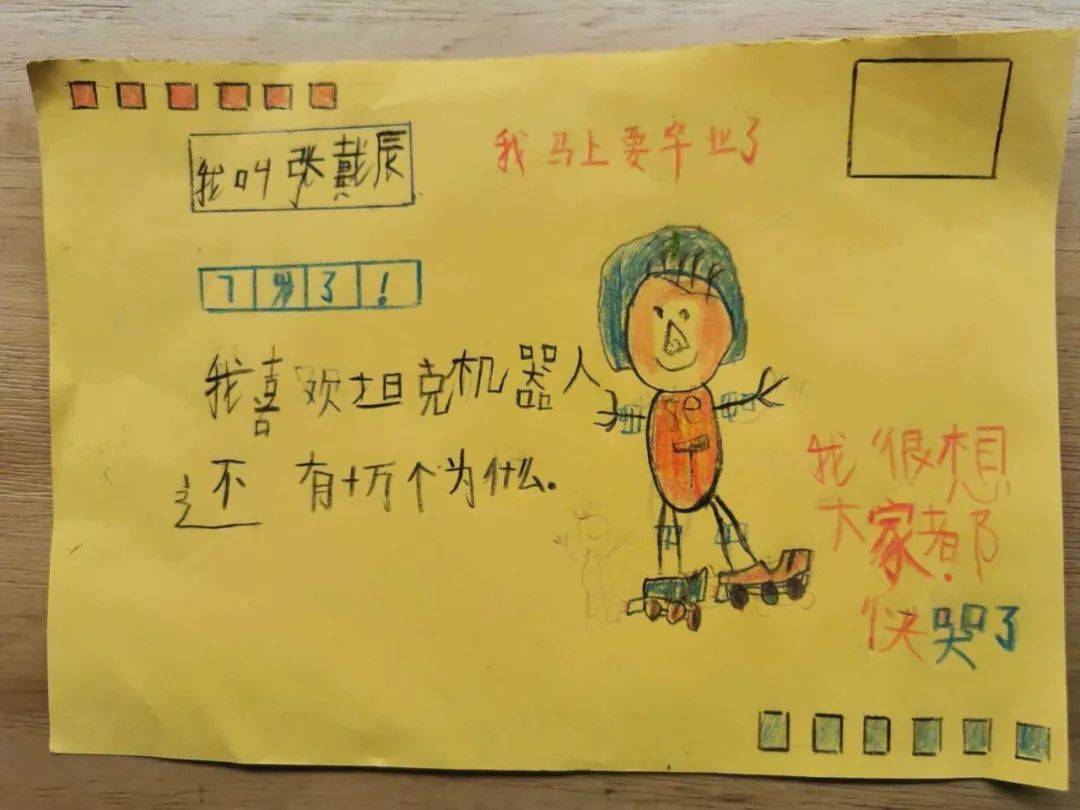 我叫张戴辰
我马上要毕业了
7岁了!
我喜欢坦克机器人
还有十万个为什么.
我很想
大家都
快哭了